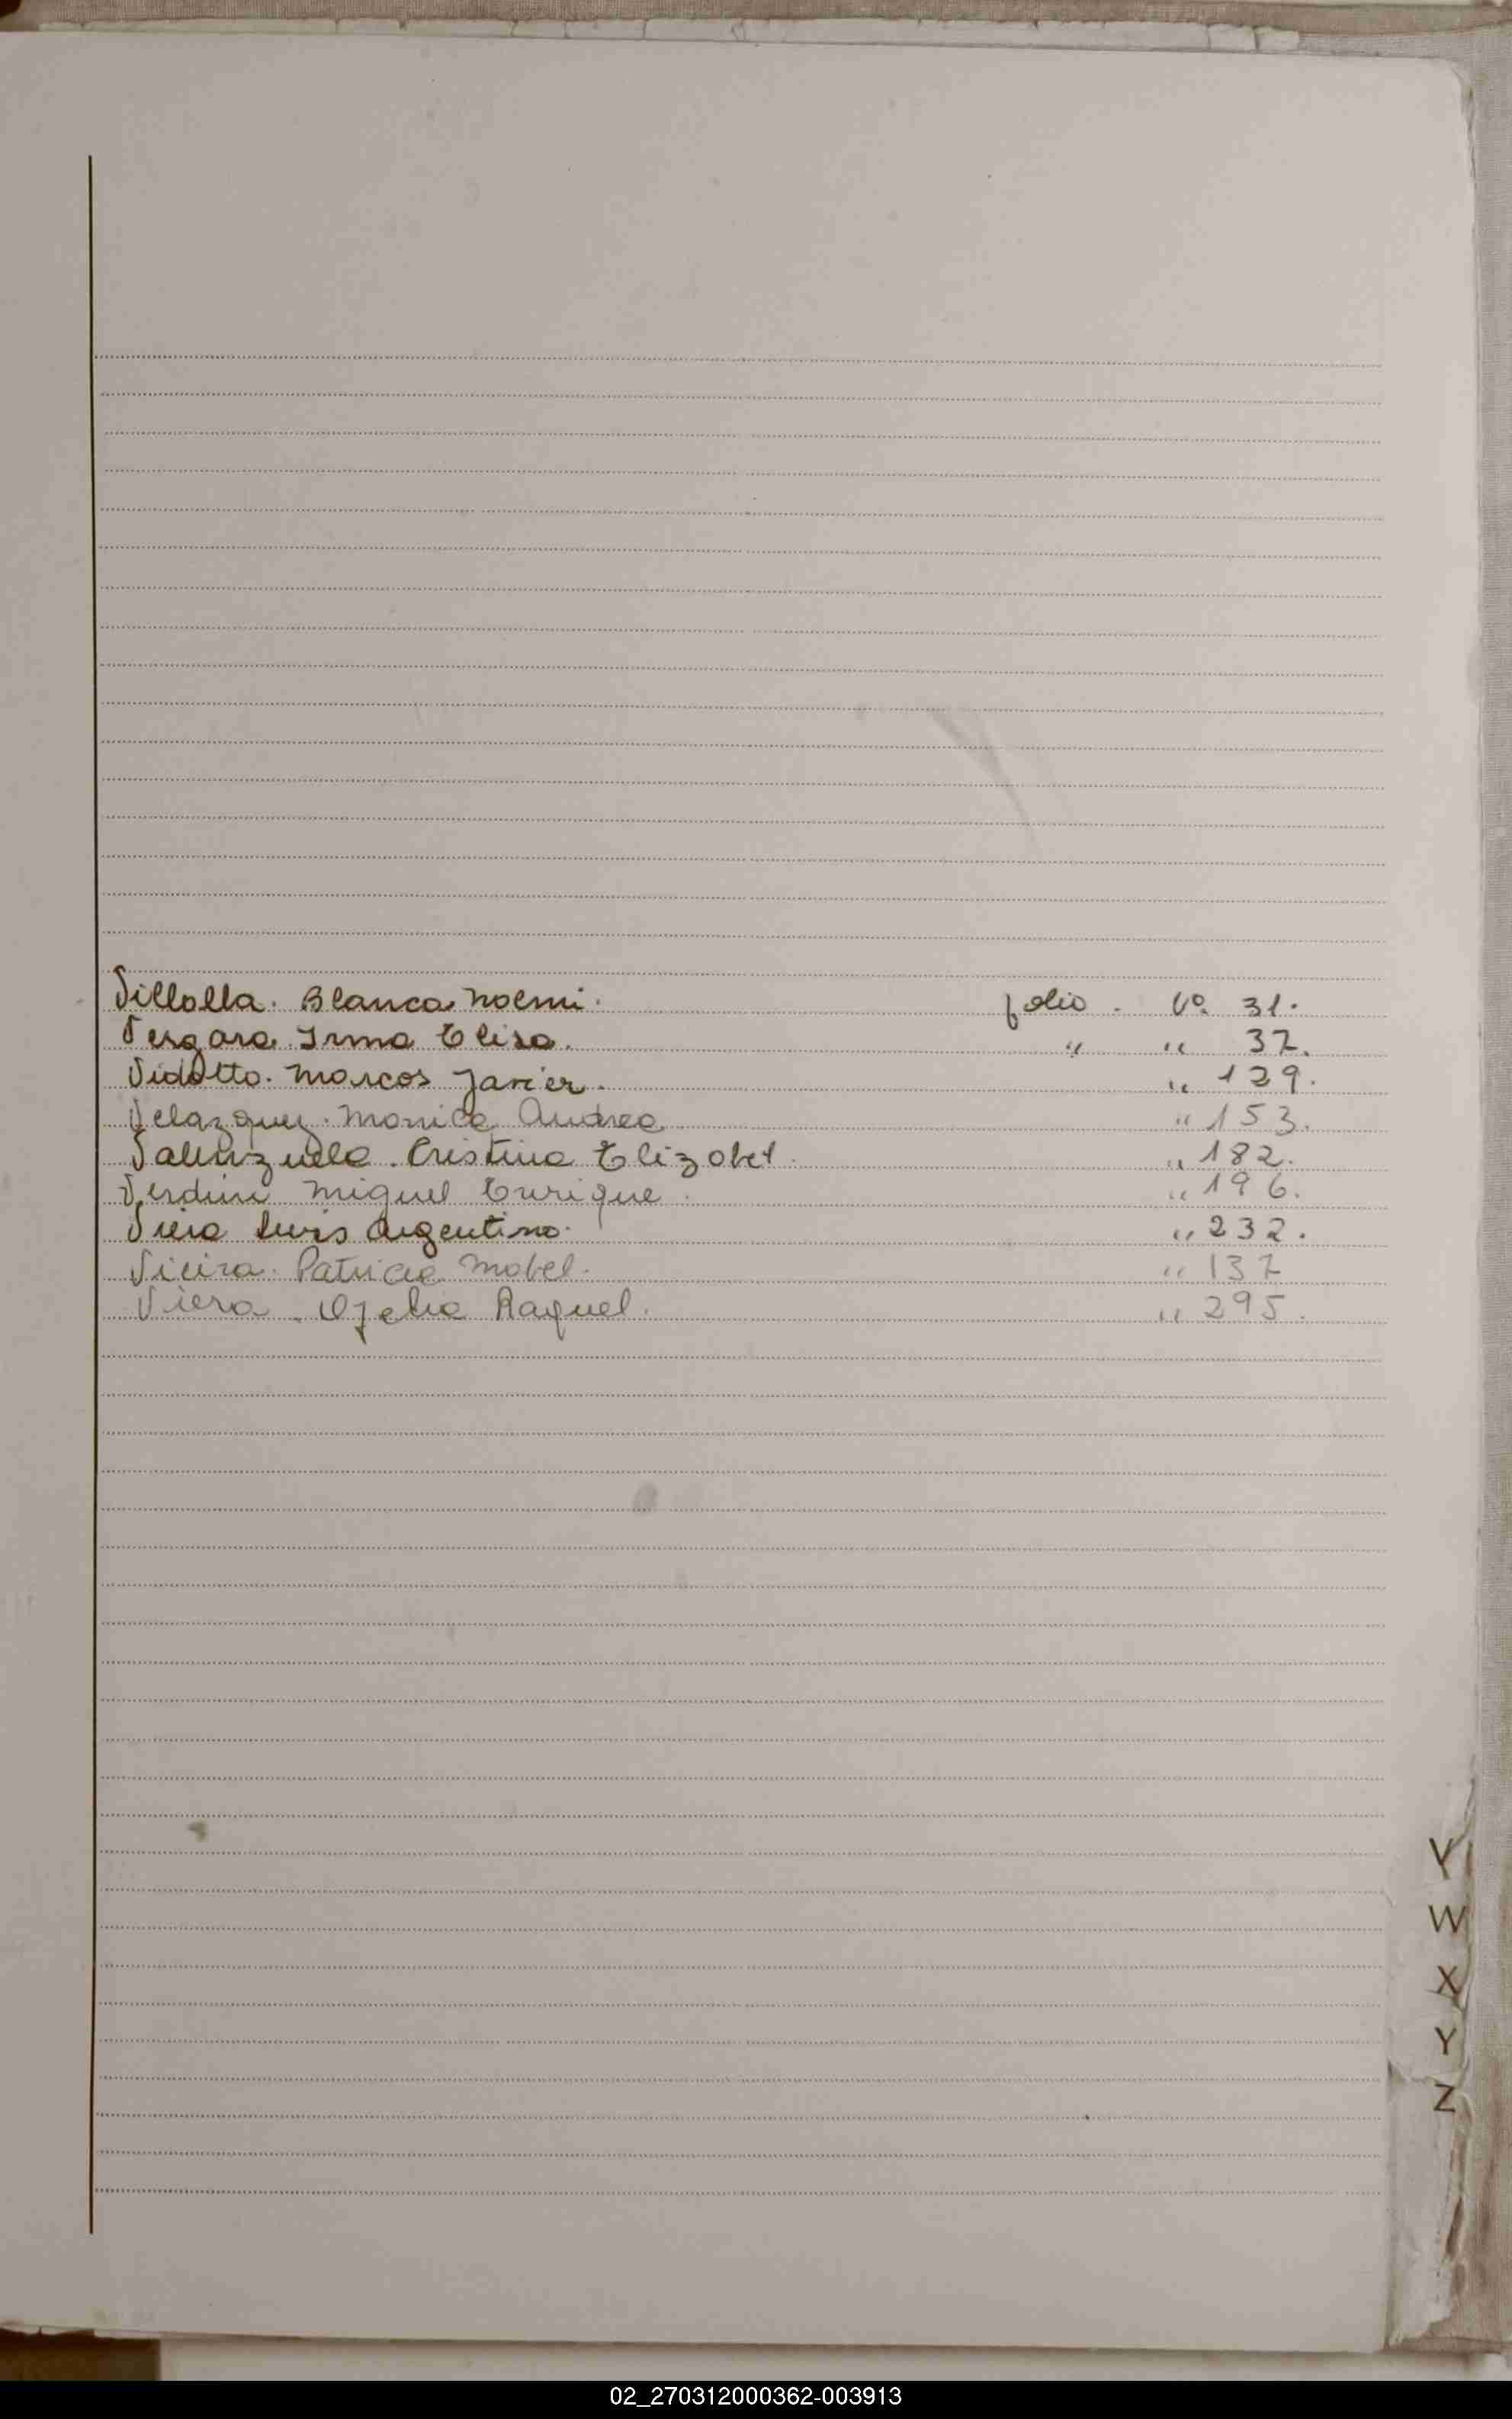 Villalla. Blanca Noemi. folio. Nº. 31.
Vergara Irma Elisa. " " 37.
Vidotto. Marcos Javier. " 129.
Velazquez. Monica Andrea " 153.
Valenzuela. Cristina Elizabet. " 182.
Verdini Miguel Enrique. " 196.
Viera Luis Argentino. " 232.
Vieira. Patricia Mabel. " 137
Viera. Ofelia Raquel. " 295.
V
W
X
Y
Z
02_270312000362-003913